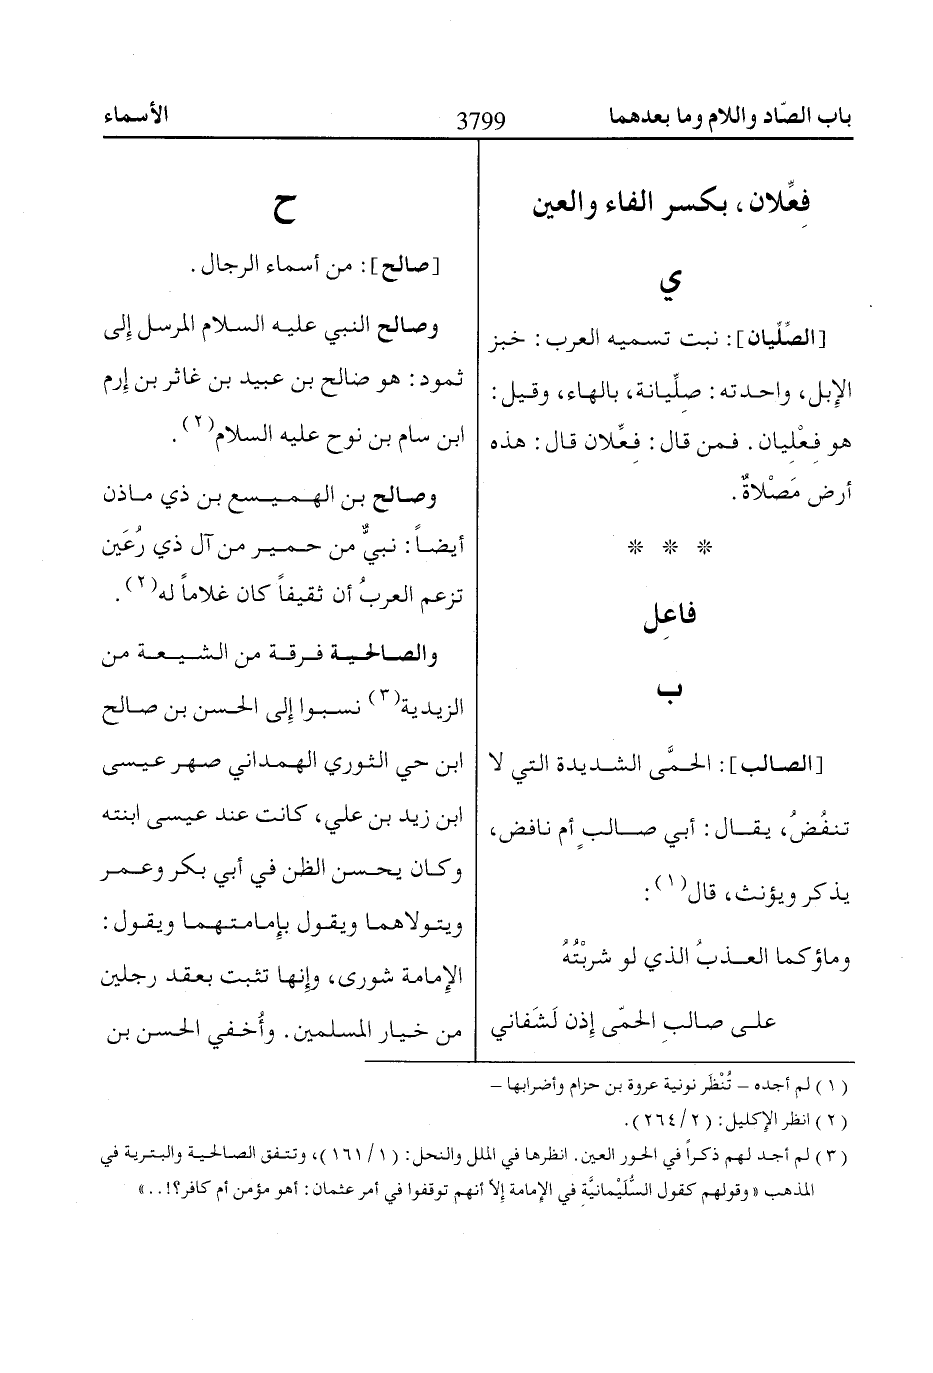 باب الصّاد واللام وما بعدهما
3799
الأسماء
فِعِّلان ، بكسر الفاء والعين
ي
[الصِّلِّيان] : نبت تسميه العرب : خبز
الإبل، واحدته : صلِّيانة، بالهاء، وقيل :
هو فِعْلِيان . فمن قال : فِعِّلان قال : هذه
أرض مَصْلاةٌ .
* * *
فاعِل
ب
[الصالب] : الحمَّى الشديدة التي لا
تنفُضُ، يقال : أبي صالبٍ أم نافض،
يذكر ويؤنث، قال(١) :
وماؤكما العذبُ الذي لو شربْتُهُ
على صالبِ الحمّى إذن لَشَفاني
ح
[صالح] : من أسماء الرجال .
وصالح النبي عليه السلام المرسل إلى
ثمود : هو صالح بن عبيد بن غاثر بن إرم
ابن سام بن نوح عليه السلام(٢) .
وصالح بن الهميسع بن ذي ماذن
أيضاً : نبيٌّ من حمير من آل ذي رُعَين
تزعم العربُ أن ثقيفاً كان غلاماً له(٢) .
والصالحية فرقة من الشيعة من
الزيدية(٣) نسبوا إلى الحسن بن صالح
ابن حي الثوري الهمداني صهر عيسى
ابن زيد بن علي، كانت عند عيسى ابنته
وكان يحسن الظن في أبي بكر وعمر
ويتولاهما ويقول بإمامتهما ويقول :
الإمامة شورى، وإنها تثبت بعقد رجلين
من خيار المسلمين . وأُخفي الحسن بن
(١) لم أجده – تُنْظَر نونية عروة بن حزام وأضرابها –
(٢) انظر الإكليل : (٢/ ٢٦٤).
(٣) لم أجد لهم ذكراً في الحور العين . انظرها في الملل والنحل : (١/ ١٦١)، وتتفق الصالحية والبترية في
المذهب « وقولهم كقول السُّلَيْمانيَّة في الإمامة إلا أنهم توقفوا في أمر عثمان : أهو مؤمن أم كافر؟! . . »